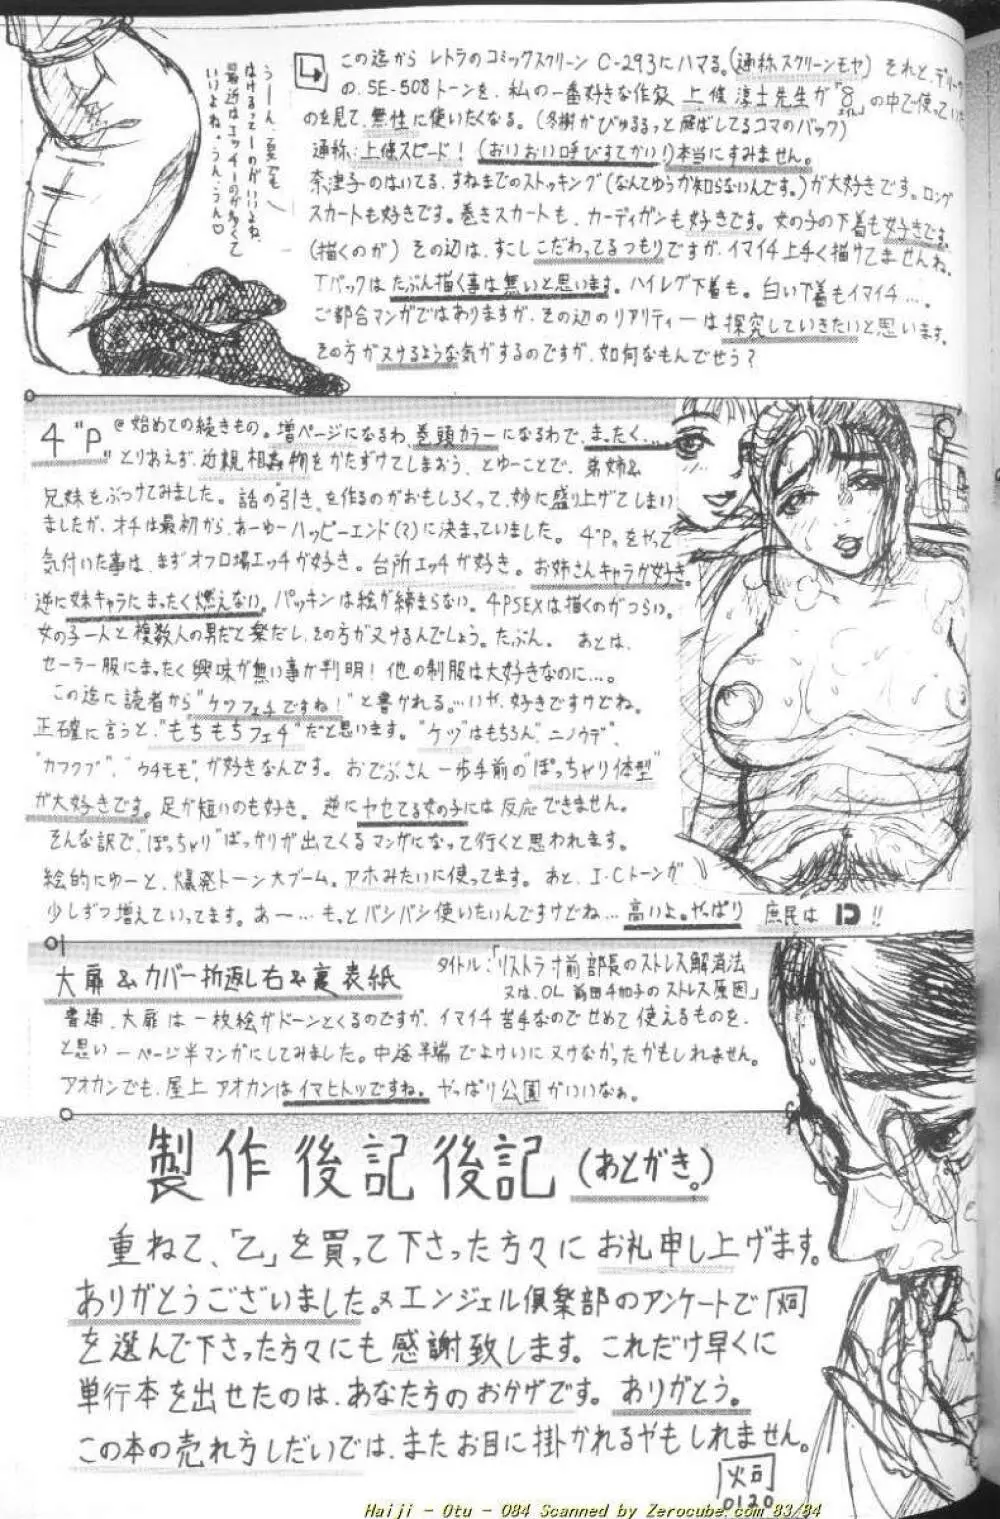 この迄から レトラのコミックスクリーン C-293にハマる。(通称スクリーンモヤ) それと、デリーター
の、SE-508トーンを、私の一番好きな作家 上條淳士先生が「8(エイト)」の中で使っていた
のを見て、無性に使いたくなる。(冬樹がびゅるるっと 飛ばしてるコマのバック)
通称、上條スピード! (おいおい呼びすてかい!)本当にすみません。
奈津子のはいてる、すねまでのストッキング(なんてゆうか知らないんです。)が大好きです。ロング
スカートも好きです。巻きスカートも、カーディガンも好きです。女の子の下着も好きです。
(描くのが) その辺は、すこしこだわってるつもりですが、イマイチ上手く描けてませんね。
Tバックは たぶん描く事は無いと思います。ハイレグ下着も。白い下着もイマイチ…。
ご都合マンガではありますが、その辺のリアリティーは探究していきたいと思います。
その方がヌけるような気がするのですが、如何なもんでせう?
うーん、夏でも
はけるってーのがいいよね、
最近はエッチーのが多くて
いいよね。うん、うん♡
4"P" @始めての続きもの。増ページになるわ、巻頭カラーになるわで、まったく…
とりあえず、近親相姦物をかたずけてしまおう、とゆーことで、弟姉&
兄妹をぶつけてみました。話の"引き"を作るのがおもしろくって、妙に盛り上げてしまい
ましたが、オチは最初から、あーゆーハッピーエンド(?)に決まっていました。4"P"をやって
気付いた事は、まずオフロ場エッチが好き。台所エッチが好き。お姉さんキャラが好き。
逆に妹キャラにまったく燃えない。パッキンは絵が締まらない。4PSEXは描くのがつらい。
女の子一人と複数人の男だと楽だし、その方がヌけるんでしょう。たぶん。 あとは、
セーラー服にまったく興味が無い事が判明! 他の制服は大好きなのに…。
この迄に読者から"ケツフェチですね!"と書かれる。…いや、好きですけどね。
正確に言うと、"もちもちフェチ"だと思います。"ケツ"はもちろん、"ニノウデ"、
"カフクブ"、"ウチモモ"、が好きなんです。おでぶさん一歩手前の"ぽっちゃり体型"
が大好きです。足が短いのも好き。逆にヤセてる女の子には反応できません。
そんな訳で、"ぽっちゃり"ばっかりが出てくるマンガになって行くと思われます。
絵的にゆーと、爆発トーン大ブーム。アホみたいに使ってます。あと、I・Cトーンが
少しずつ増えていってます。あー…もっとバシバシ使いたいんですけどね… 高いよ。やっぱり 庶民は !!
01
大扉&カバー折返し右&裏表紙
タイトル:「リストラ寸前部長のストレス解消法
又は、OL前田千加子のストレス原因」
普通、大扉は一枚絵がドーンとくるのですが、イマイチ苦手なのでせめて使えるものを、
と思い一ページ半マンガにしてみました。中途半端でよけいにヌけなかったかもしれません。
アオカンでも、屋上アオカンはイマヒトツですね。やっぱり公園がいいなぁ。
製作後記後記(あとがき。)
重ねて、「乙」を買って下さった方々にお礼申し上げます。
ありがとうございました。又エンジェル倶楽部のアンケートで「烱」
を選んで下さった方々にも感謝致します。これだけ早くに
単行本を出せたのは、あなた方のおかげです。ありがとう。
この本の売れ方しだいでは、またお目に掛かれるやもしれません。
0120
Haiji - Otu - 084 Scanned by Zerocube.com 83/84